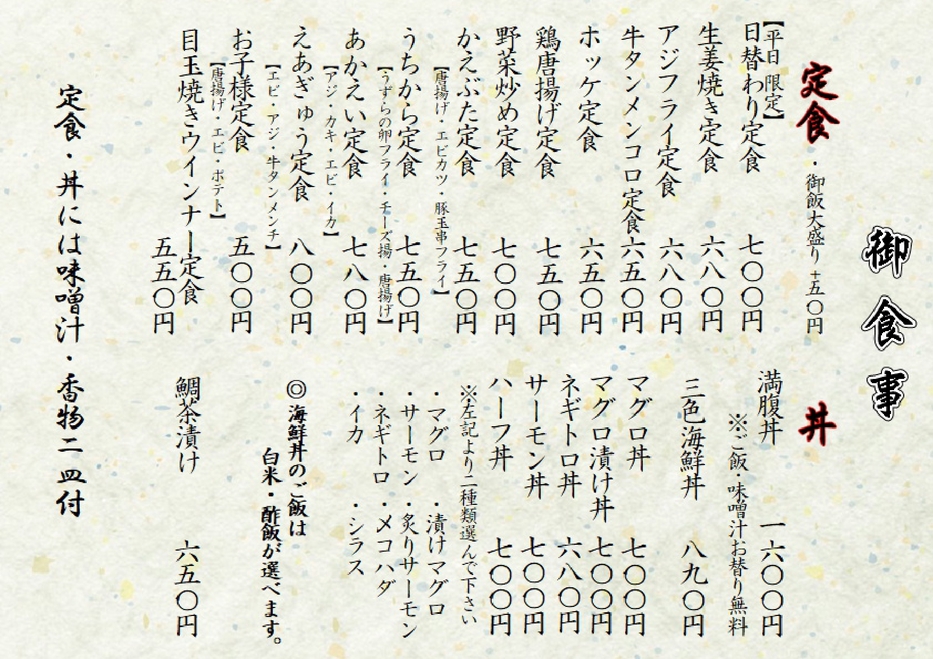 御食事
定食・御飯大盛り +五〇円
【平日 限定】
日替わり定食 七〇〇円
生姜焼き定食 六八〇円
アジフライ定食 六八〇円
牛タンメンコロ定食 六五〇円
ホッケ定食 六五〇円
鶏唐揚げ定食 七五〇円
野菜炒め定食 七〇〇円
かえぶた定食 七五〇円
【唐揚げ・エビカツ・豚玉串フライ】
うちから定食 七五〇円
【うずらの卵フライ・チーズ揚・唐揚げ】
あかえい定食 七八〇円
【アジ・カキ・エビ・イカ】
えあぎゅう定食 八〇〇円
【エビ・アジ・牛タンメンチ】
お子様定食 五〇〇円
【唐揚げ・エビ・ポテト】
目玉焼きウインナー定食 五五〇円
丼
満腹丼 一六〇〇円
※ご飯・味噌汁お替り無料
三色海鮮丼 八九〇円
マグロ丼 七〇〇円
マグロ漬け丼 七〇〇円
ネギトロ丼 六八〇円
サーモン丼 七〇〇円
ハーフ丼 七〇〇円
※左記より二種類選んで下さい
・マグロ ・漬けマグロ
・サーモン ・炙りサーモン
・ネギトロ ・メコハダ
・イカ ・シラス
◎海鮮丼のご飯は
白米・酢飯が選べます。
鯛茶漬け 六五〇円
定食・丼には味噌汁・香物二皿付